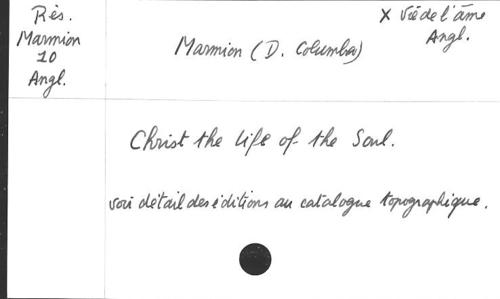 Rès.
Marmion
10
Angl.
Marmion (D. Columba)
X Vie de l'âme
Angl.
Christ the life of the Soul.
voir détail des éditions au catalogue topographique.